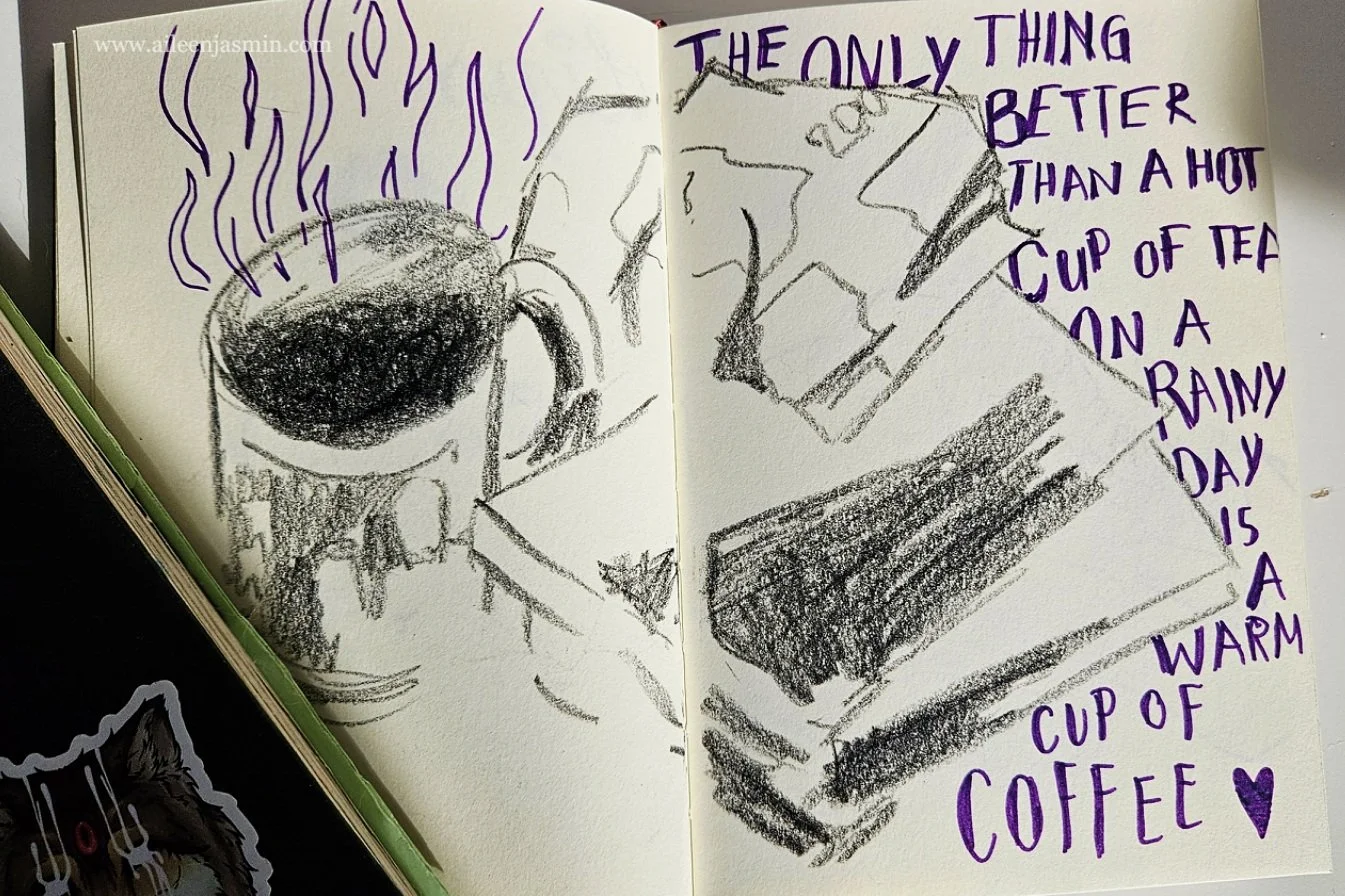 www.aileenjasmin.com
THE ONLY THING
BETTER
THAN A HOT
CUP OF TEA
ON A
RAINY
DAY
IS
A
WARM
CUP OF
COFFEE